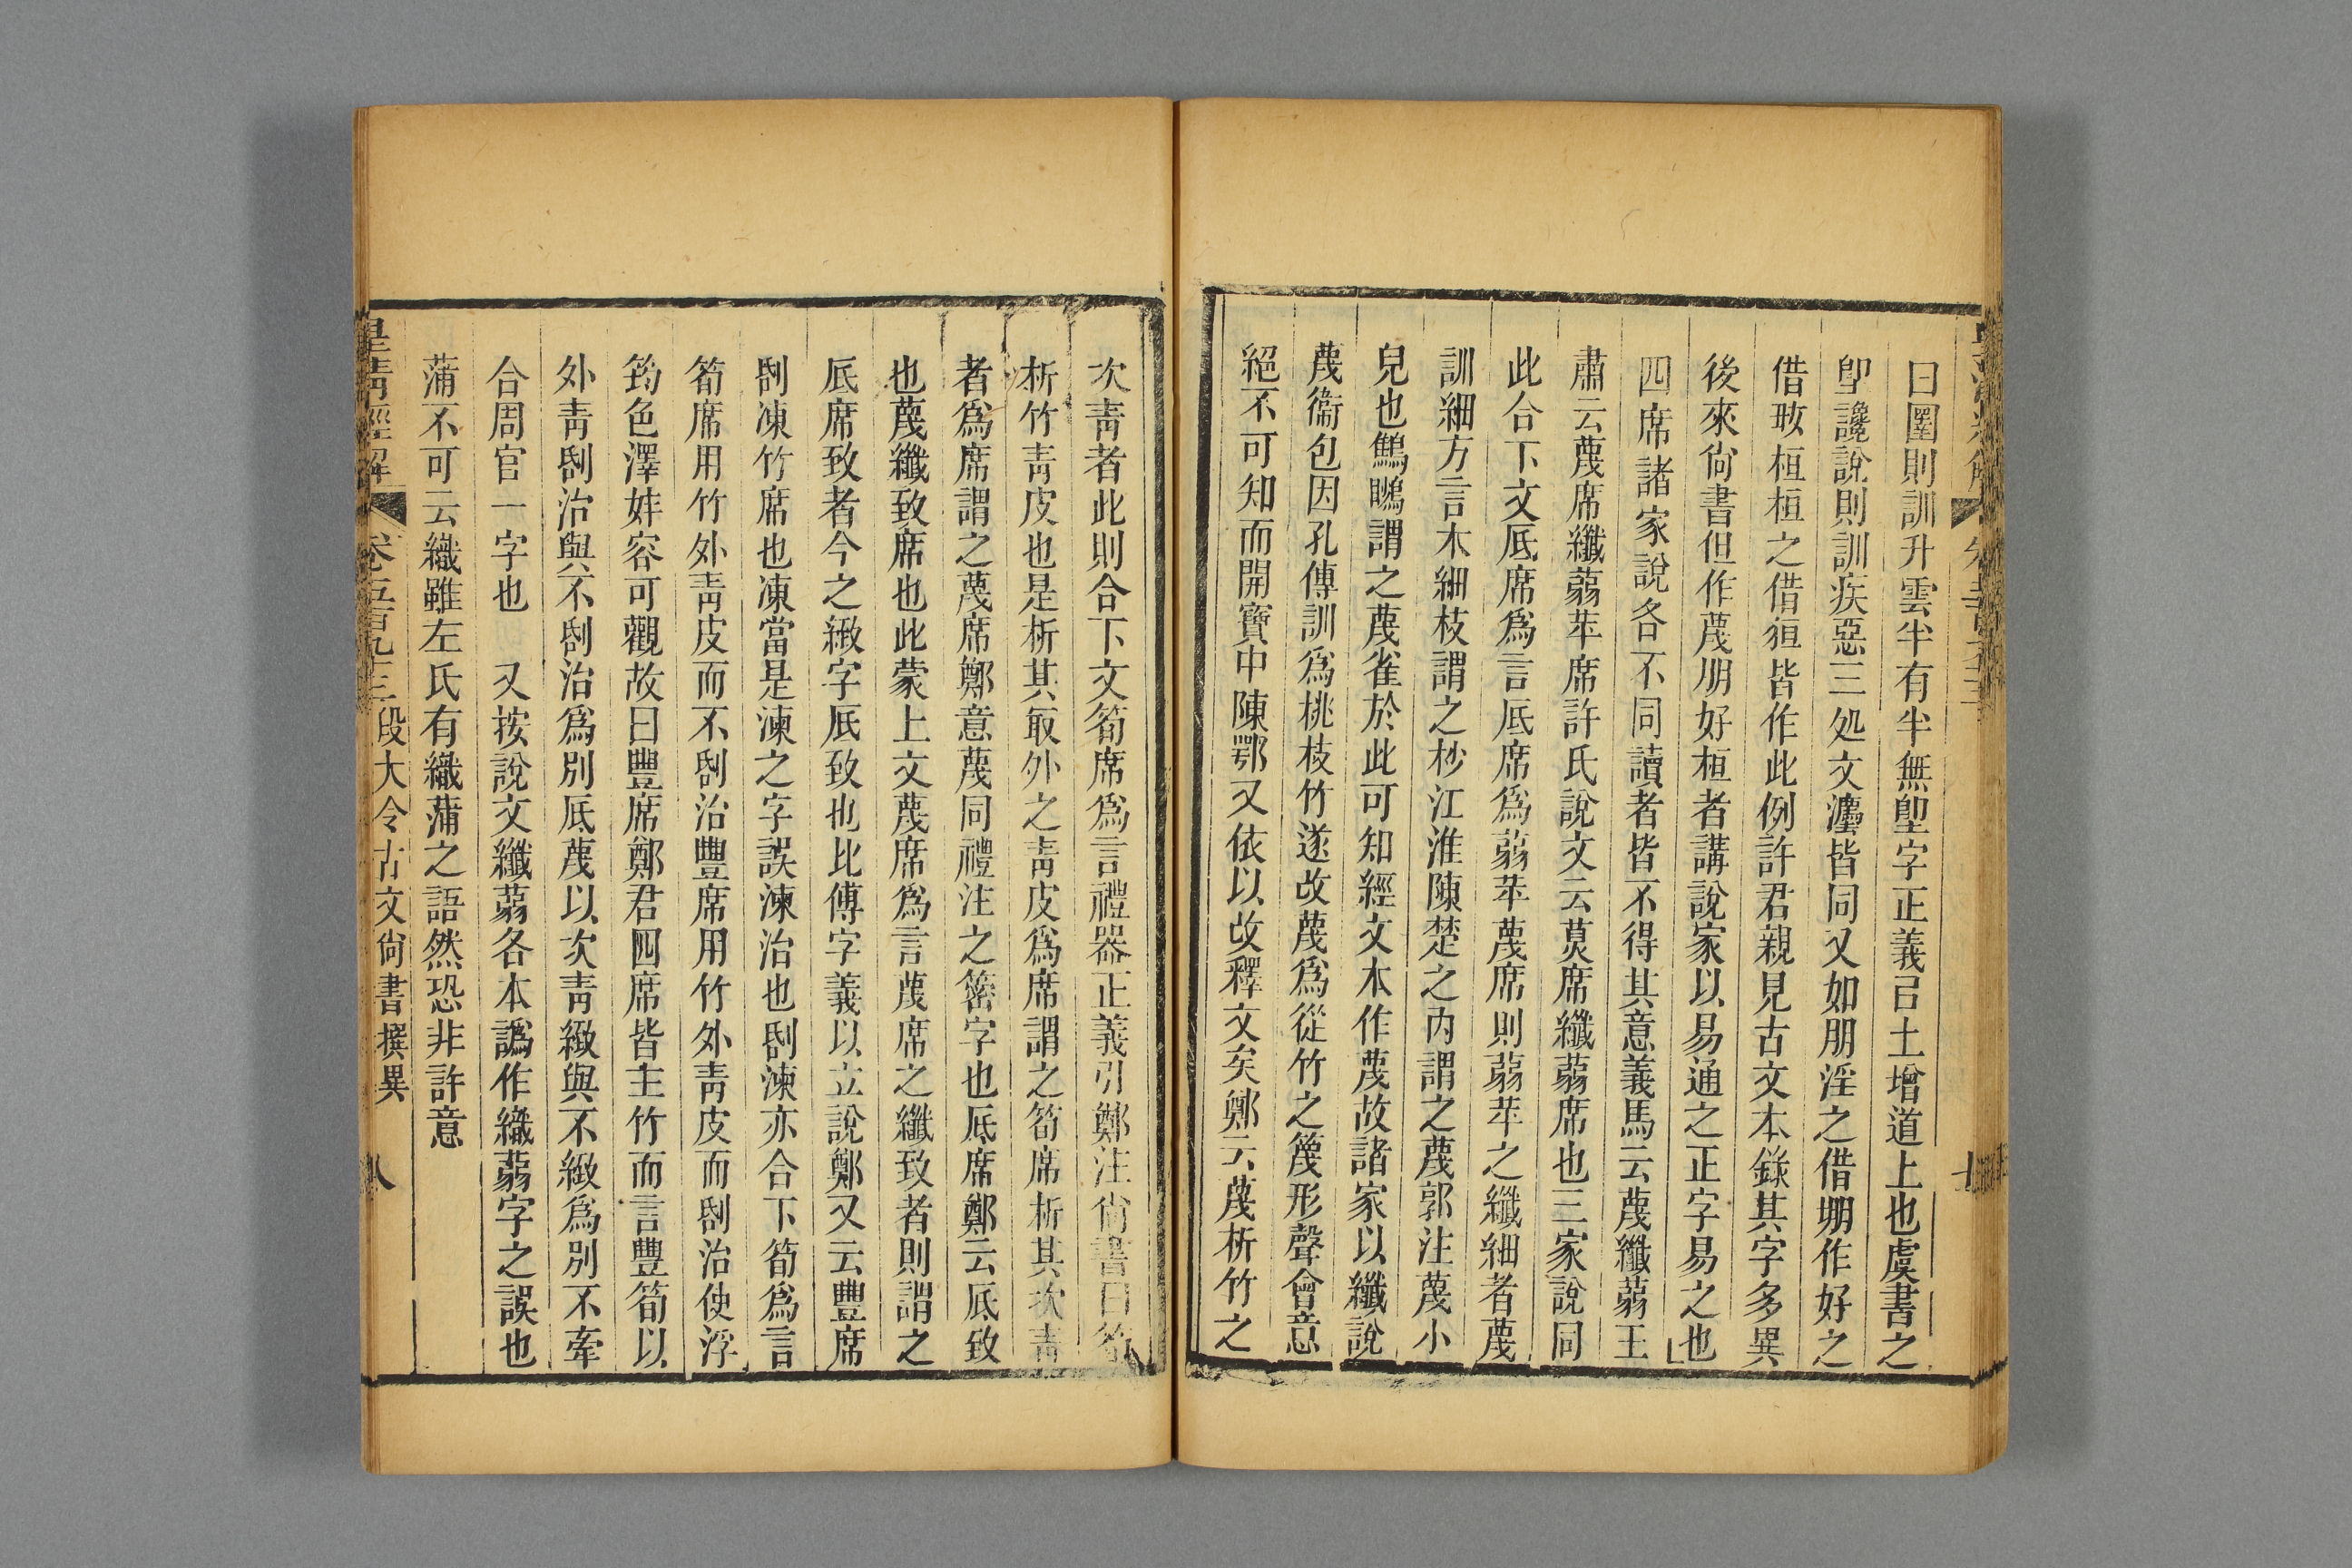 曰圛則訓升雲半有半無堲字正義㠯土增道上也虞書之
卽讒說則訓疾惡三処文灋皆同又如朋淫之借堋作好之
借㪤桓桓之借狟皆作此例許君親見古文本錄其字多異
後來尙書但作蔑朋好桓者講說家以易通之正字易之也
四席諸家說各不同讀者皆不得其意義馬云蔑纖蒻王
肅云蔑席纖蒻苹席許氏說文云莫席纖蒻席也三家說同
此合下文厎席爲言厎席爲蒻苹蔑席則蒻苹之纖細者蔑
訓細方言木細枝謂之杪江淮陳楚之内謂之蔑郭注蔑小
皃也鷦䳟謂之蔑雀於此可知經文本作蔑故諸家以纖說
蔑衞包因孔傳訓爲桃枝竹遂改蔑爲從竹之篾形聲會意
絕不可知而開寶中陳鄂又依以改釋文矣鄭云蔑析竹之
次靑者此則合下文筍席爲言禮器正義引鄭注尙書曰筍
析竹靑皮也是析其㝡外之靑皮爲席謂之筍席析其次靑
者爲席謂之蔑席鄭意蔑同禮注之䈼字也厎席鄭云厎致
也蔑纖致席也此蒙上文蔑席爲言蔑席之纖致者則謂之
厎席致者今之緻字厎致也比傅字義以立說鄭又云豐席
刮凍竹席也凍當是湅之字誤湅治也刮湅亦合下筍爲言
筍席用竹外靑皮而不刮治豐席用竹外靑皮而刮治使浮
筠色澤妦容可觀故曰豐席鄭君四席皆主竹而言豐筍以
外靑刮治與不刮治爲別厎蔑以次靑緻與不緻爲別不牽
合周官一字也　又按說文纖蒻各本譌作織蒻字之誤也
蒲不可云織雖左氏有織蒲之語然恐非許意
皇淸經解　卷五百九十三　段大令古文尙書撰異　八